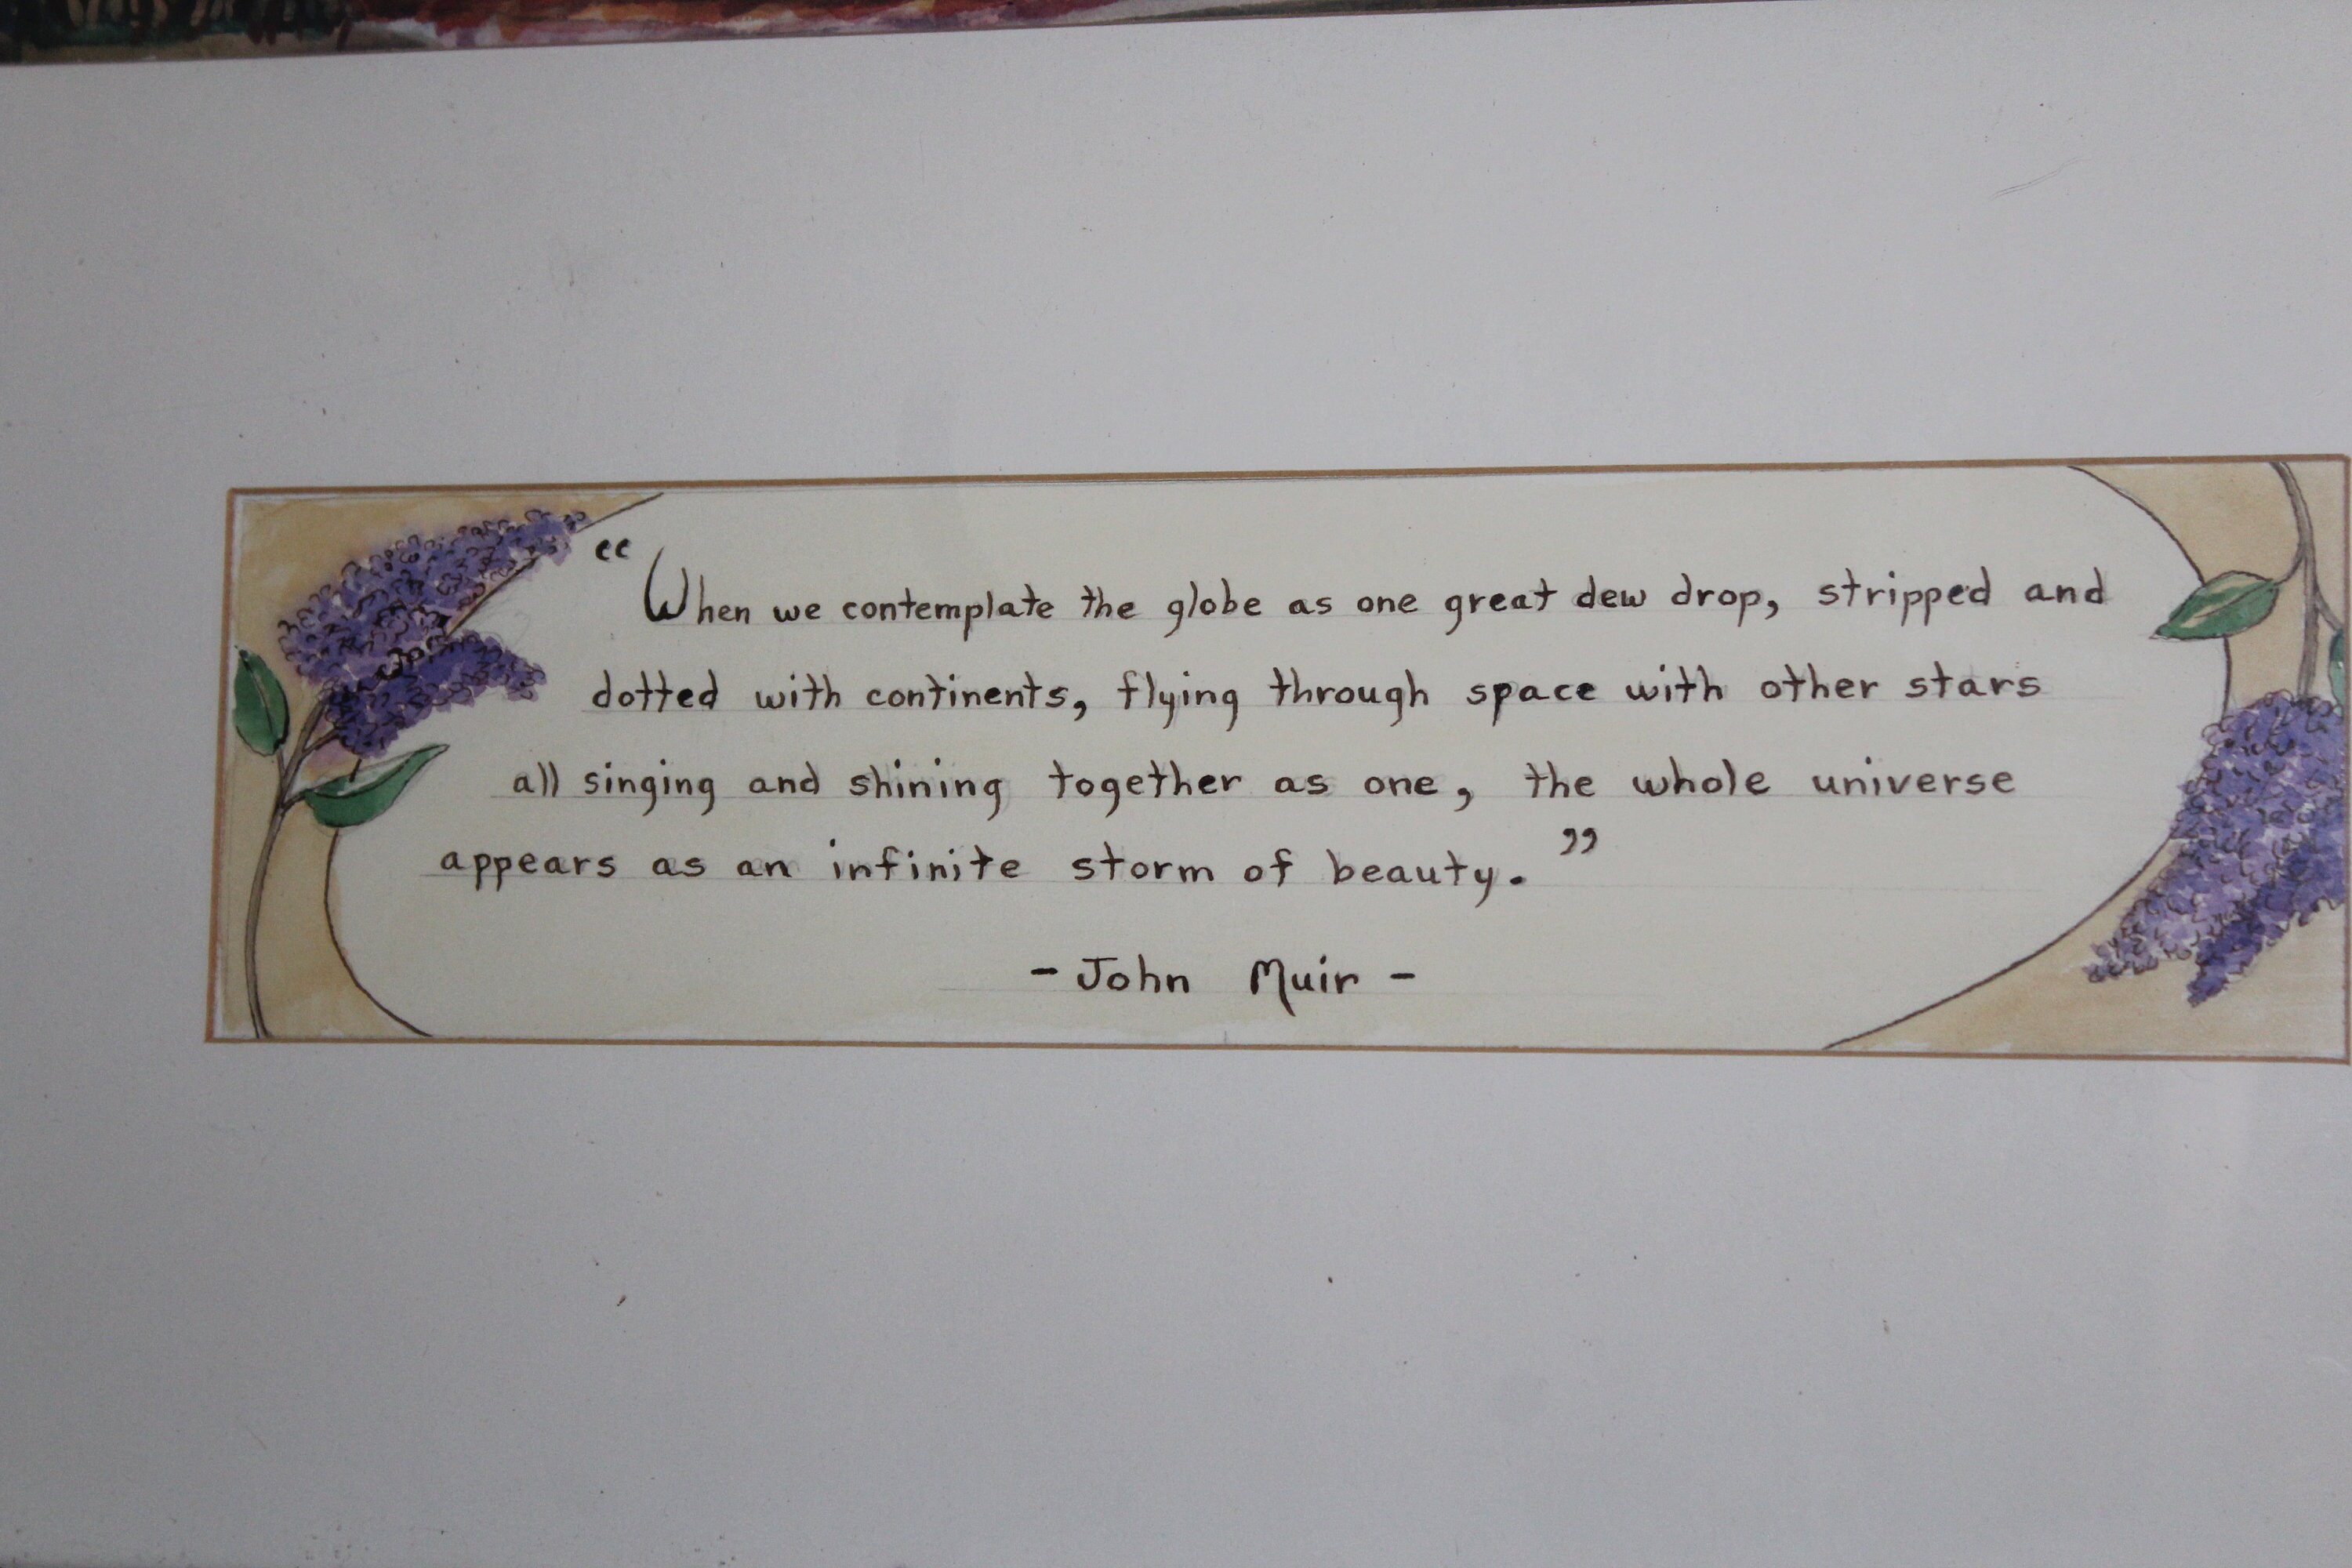 “When we contemplate the globe as one great dew drop, stripped and
dotted with continents, flying through space with other stars
all singing and shining together as one, the whole universe
appears as an infinite storm of beauty.”
- John Muir -